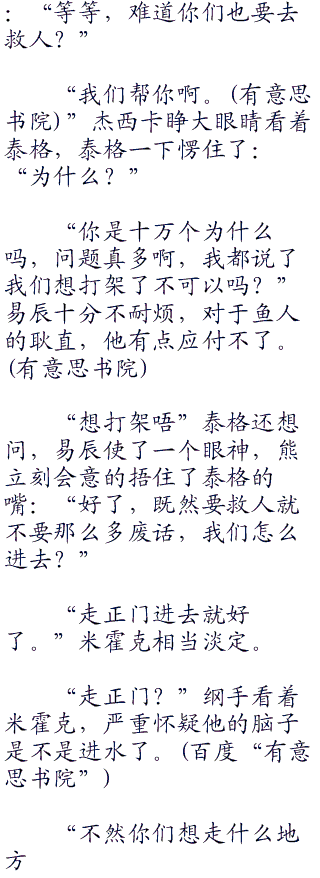 ：“等等，难道你们也要去
救人？”
“我们帮你啊。(有意思
书院)”杰西卡睁大眼睛看着
泰格，泰格一下愣住了：
“为什么？”
“你是十万个为什么
吗，问题真多啊，我都说了
我们想打架了不可以吗？”
易辰十分不耐烦，对于鱼人
的耿直，他有点应付不了。
(有意思书院)
“想打架唔”泰格还想
问，易辰使了一个眼神，熊
立刻会意的捂住了泰格的
嘴：“好了，既然要救人就
不要那么多废话，我们怎么
进去？”
“走正门进去就好
了。”米霍克相当淡定。
“走正门？”纲手看着
米霍克，严重怀疑他的脑子
是不是进水了。(百度“有意
思书院”)
“不然你们想走什么地
方